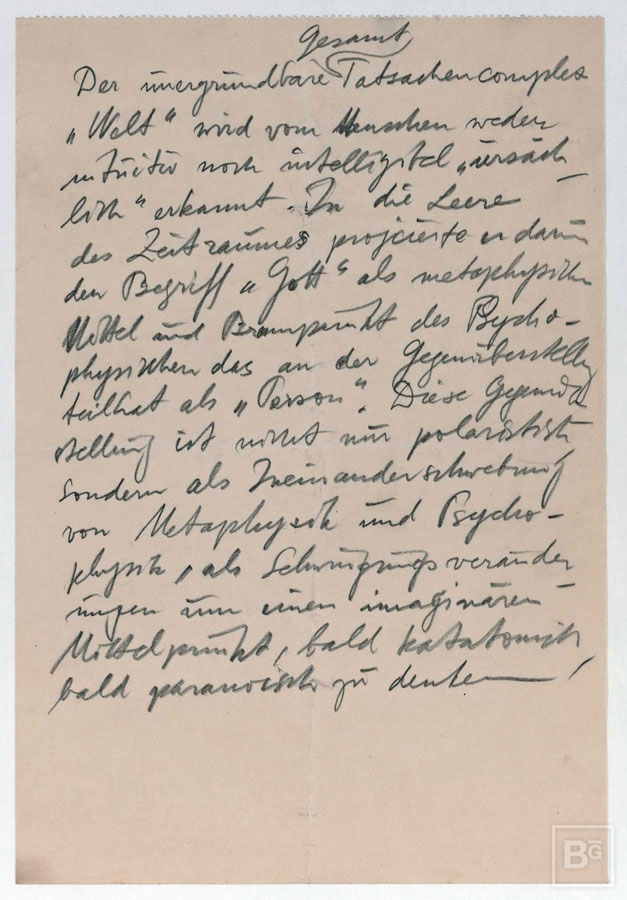 gesamt
Der unergründbare Tatsachencomplex
„Welt“ wird vom Menschen weder
intuitiv noch intelligibel „ursäch-
lich“ erkannt. In die Leere
des Zeitraumes projcierte er darum
den Begriff „Gott“ als metaphysischen
Mittel und Brennpunkt des Psycho-
physischen das an der Gegenüberstellg
teilhat als „Person“. Diese Gegenüber
stellung ist nicht nur polaristisch
sondern als Ineinanderschwebung
von Metaphysik und Psycho-
physik, als Schwingungsveränder
ungen um einen imaginären
Mittelpunkt, bald katatonisch
bald paranoisch zu deuten!
BG